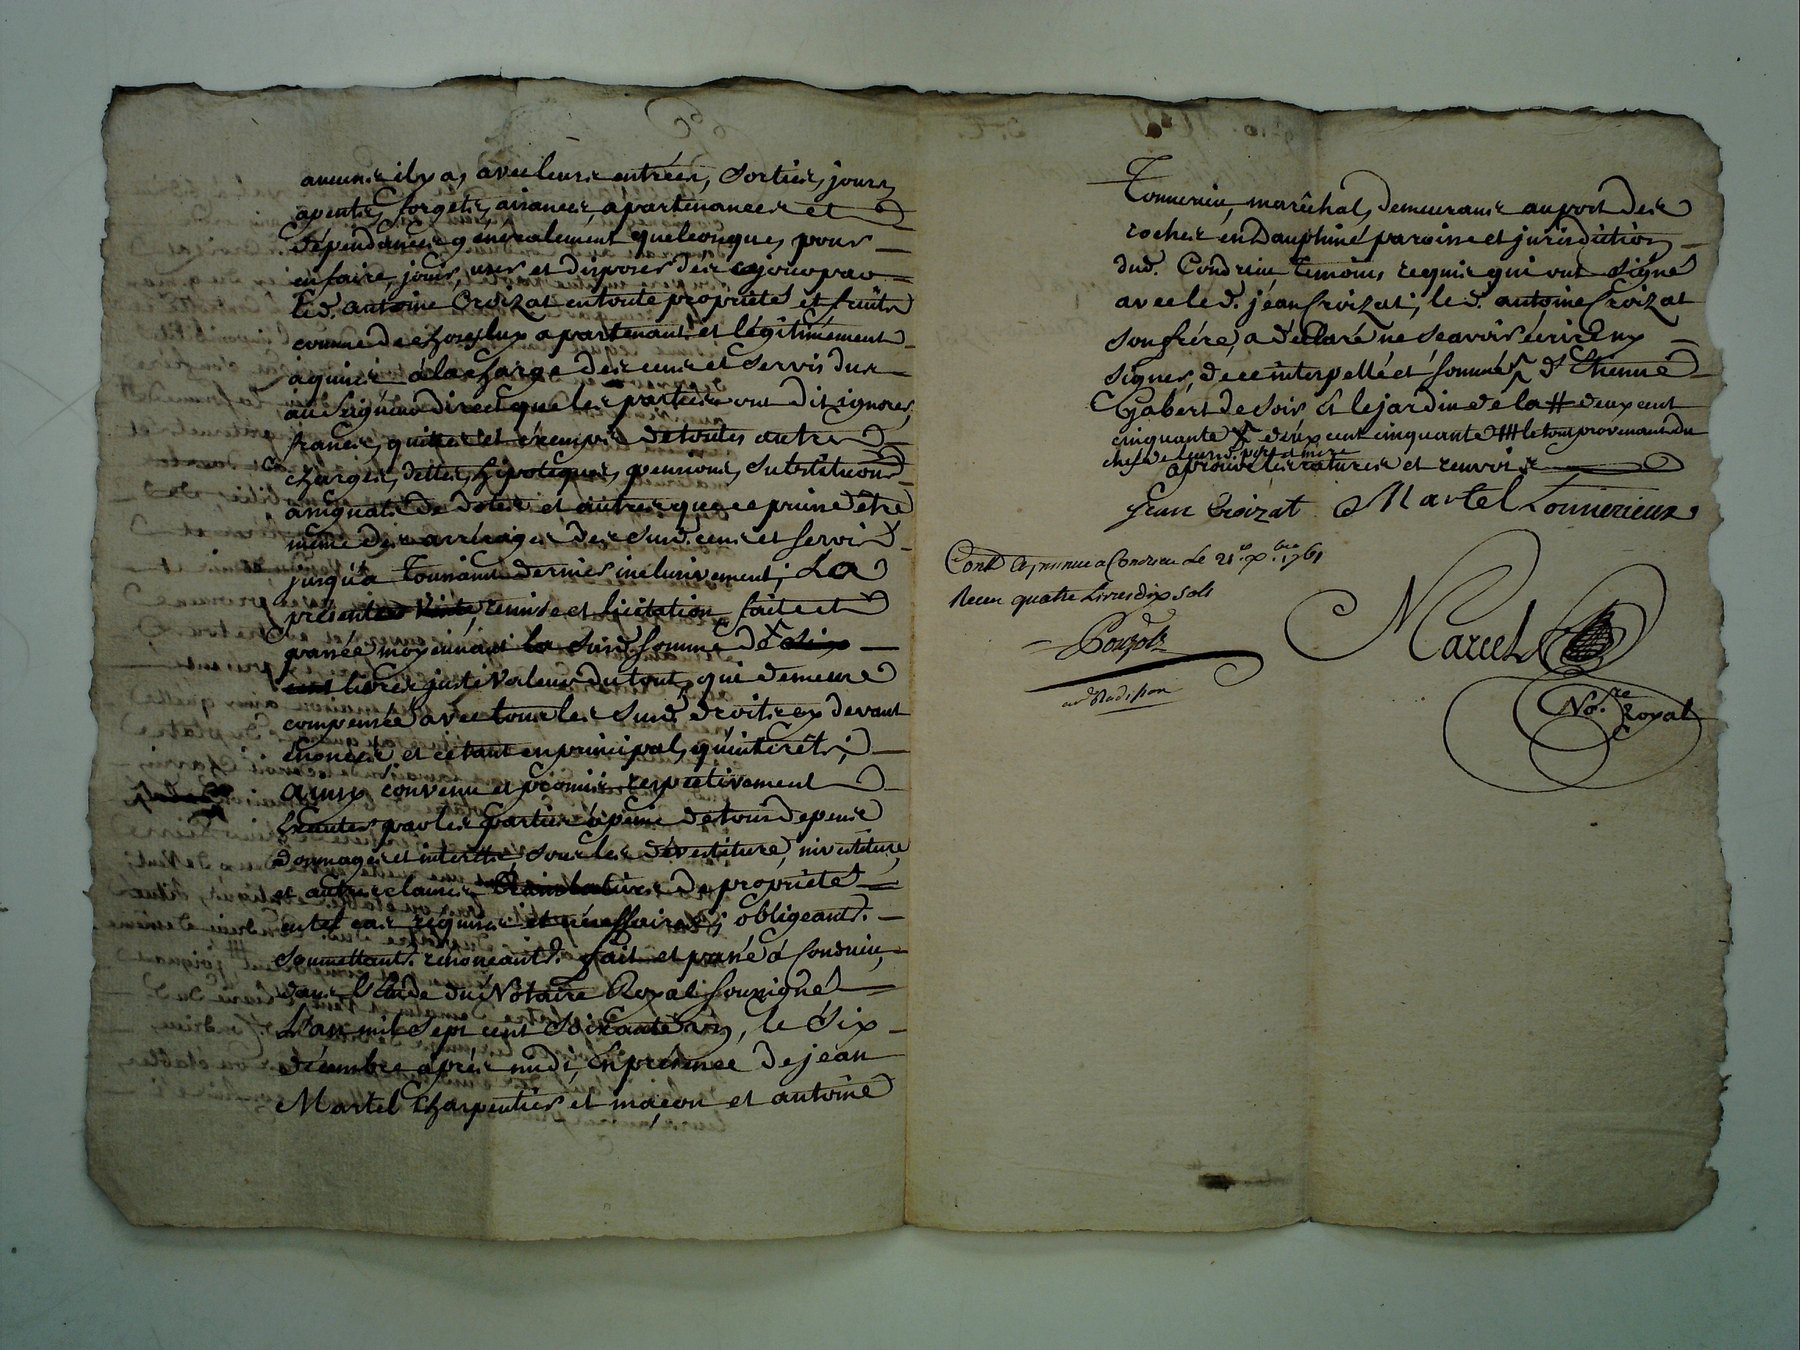 aucunes il y a, avec leurs entrées, sorties, jours,
apentis, forgets, aisances, apartenances et
dépendances généralement quelconques, pour
en faire, jouir, user et disposer des cejourd
led. antoine Croizat en toute propriété et fruits
comme de choses lux apartenant et légitimement
aquises a la charge des cens et servis dus
au seigneur direct que les parties ont dit ignorer,
francs, quittes et exempts de toutes autres
charges, dettes, hipoteques, pensions, substitutions
assignats de dotes et autres que ce puisse être
même des arrérages des susd. cens et servis
jusqu'a Toussaint dernier inclusivement; La
présente vente, remise et licitation faite et
passée moyennant la susd. somme de six
cent livres juste valeur du tout, qui demeure
compensée avec tous les susd. droits cy devant
énoncés et ce tant en principal, qu'interêts;
ainsy convenu et promis respectivement
executer par les parties à peine de tous depens
dommages et interêts, sous les dévestiture, investiture,
et autres clauses translatives de propriété
en tel cas requises et nécessaires; obligeant.
soumettant. renonçant. fait et passé à Condrieu,
dans l'étude du Notaire Royal soussigné
L'an mil sept cent soixante un, le six
décembre après midi, En présence de jean
Martel Charpentier et maçon et antoine
Tonnerieu, maréchal, demeurants au port des
roches en Dauphiné paroisse et jurisdiction
dud. Condrieu, témoins requis qui ont signé
avec led. jean Croizat; led. antoine Croizat
son frére, a déclaré ne sçavoir écrire ny
signer, de ce interpellé et sommé d'Etienne
Gabert de soir et le jardin de la # deux cent
cinquante deux cent cinquante ## le tout provenant du
chef de leursd. pere et mere
aprouvé les ratures et renvois
Jean Croizat Martel Tonnerieux
Contlé a Condrieu Le 21e xbre 1761
Receu quatre Livres dix sols
Marcel
Nore. Royal